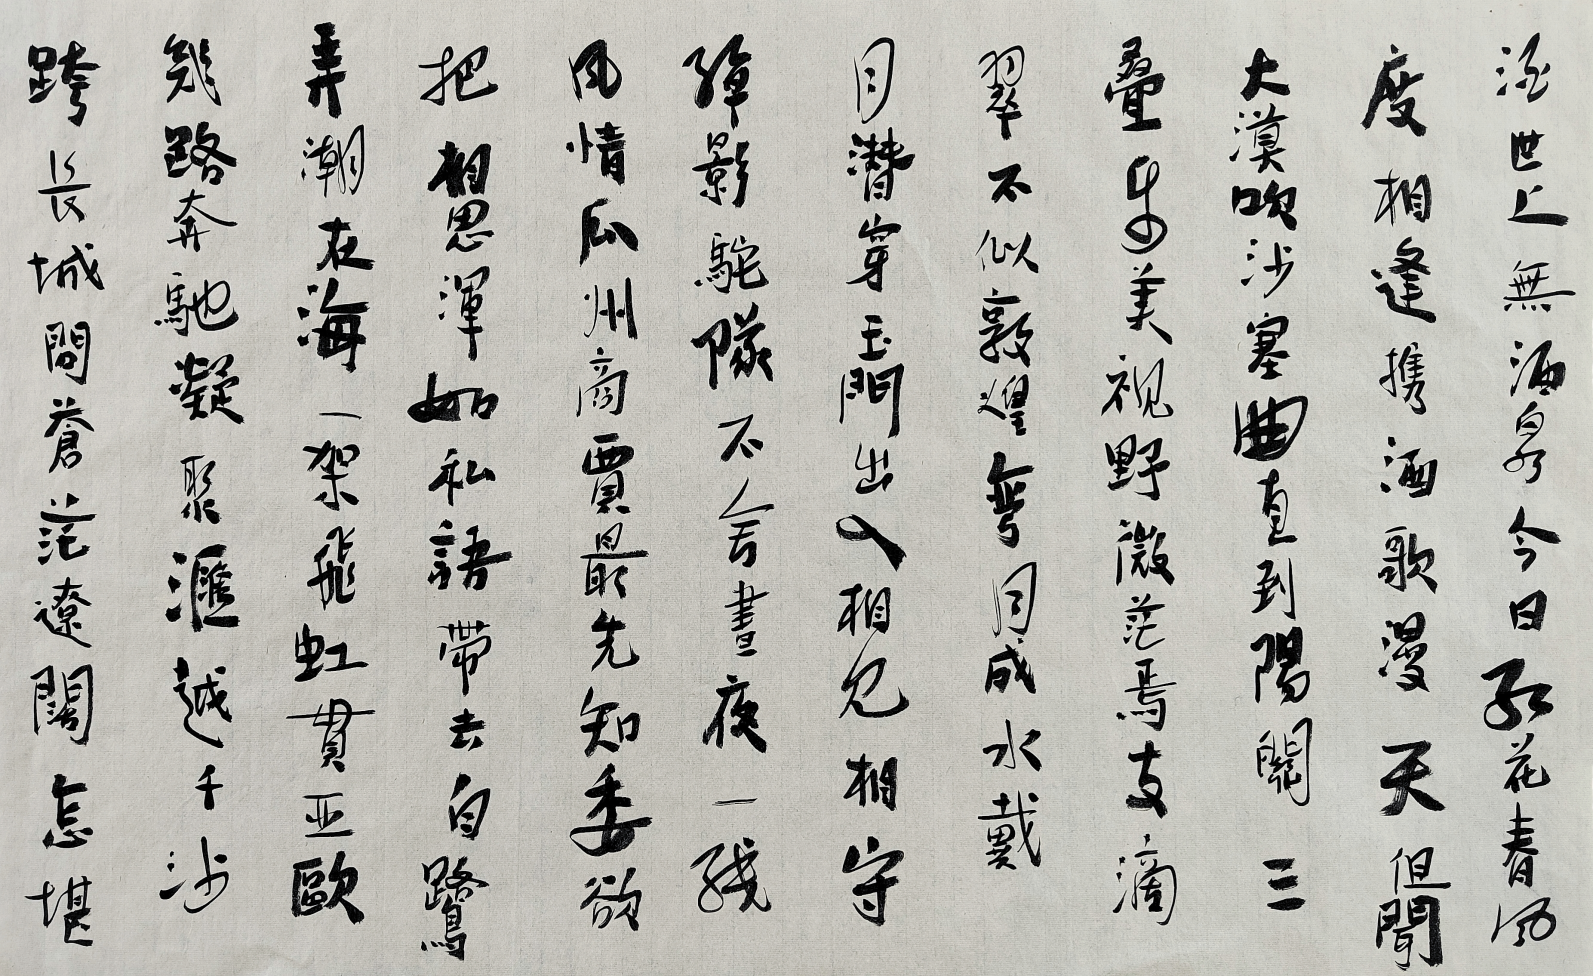 世上無酒泉今日花春風
度相逢携酒歌漫天但聞
大漠吹沙塞曲直到陽關三
疊美視野微茫焉支滴
翠不似敦煌彎月成水戴
月潛穿玉門出入相見相守
影駝隊不舍晝夜一綫
風情瓜州商賈最先知委欲
把相思渾如私語帶去白鷺
弄潮在海一架飛虹貫亞歐
幾路奔馳凝聚滙越千沙
跨長城間蒼茫遼闊怎堪